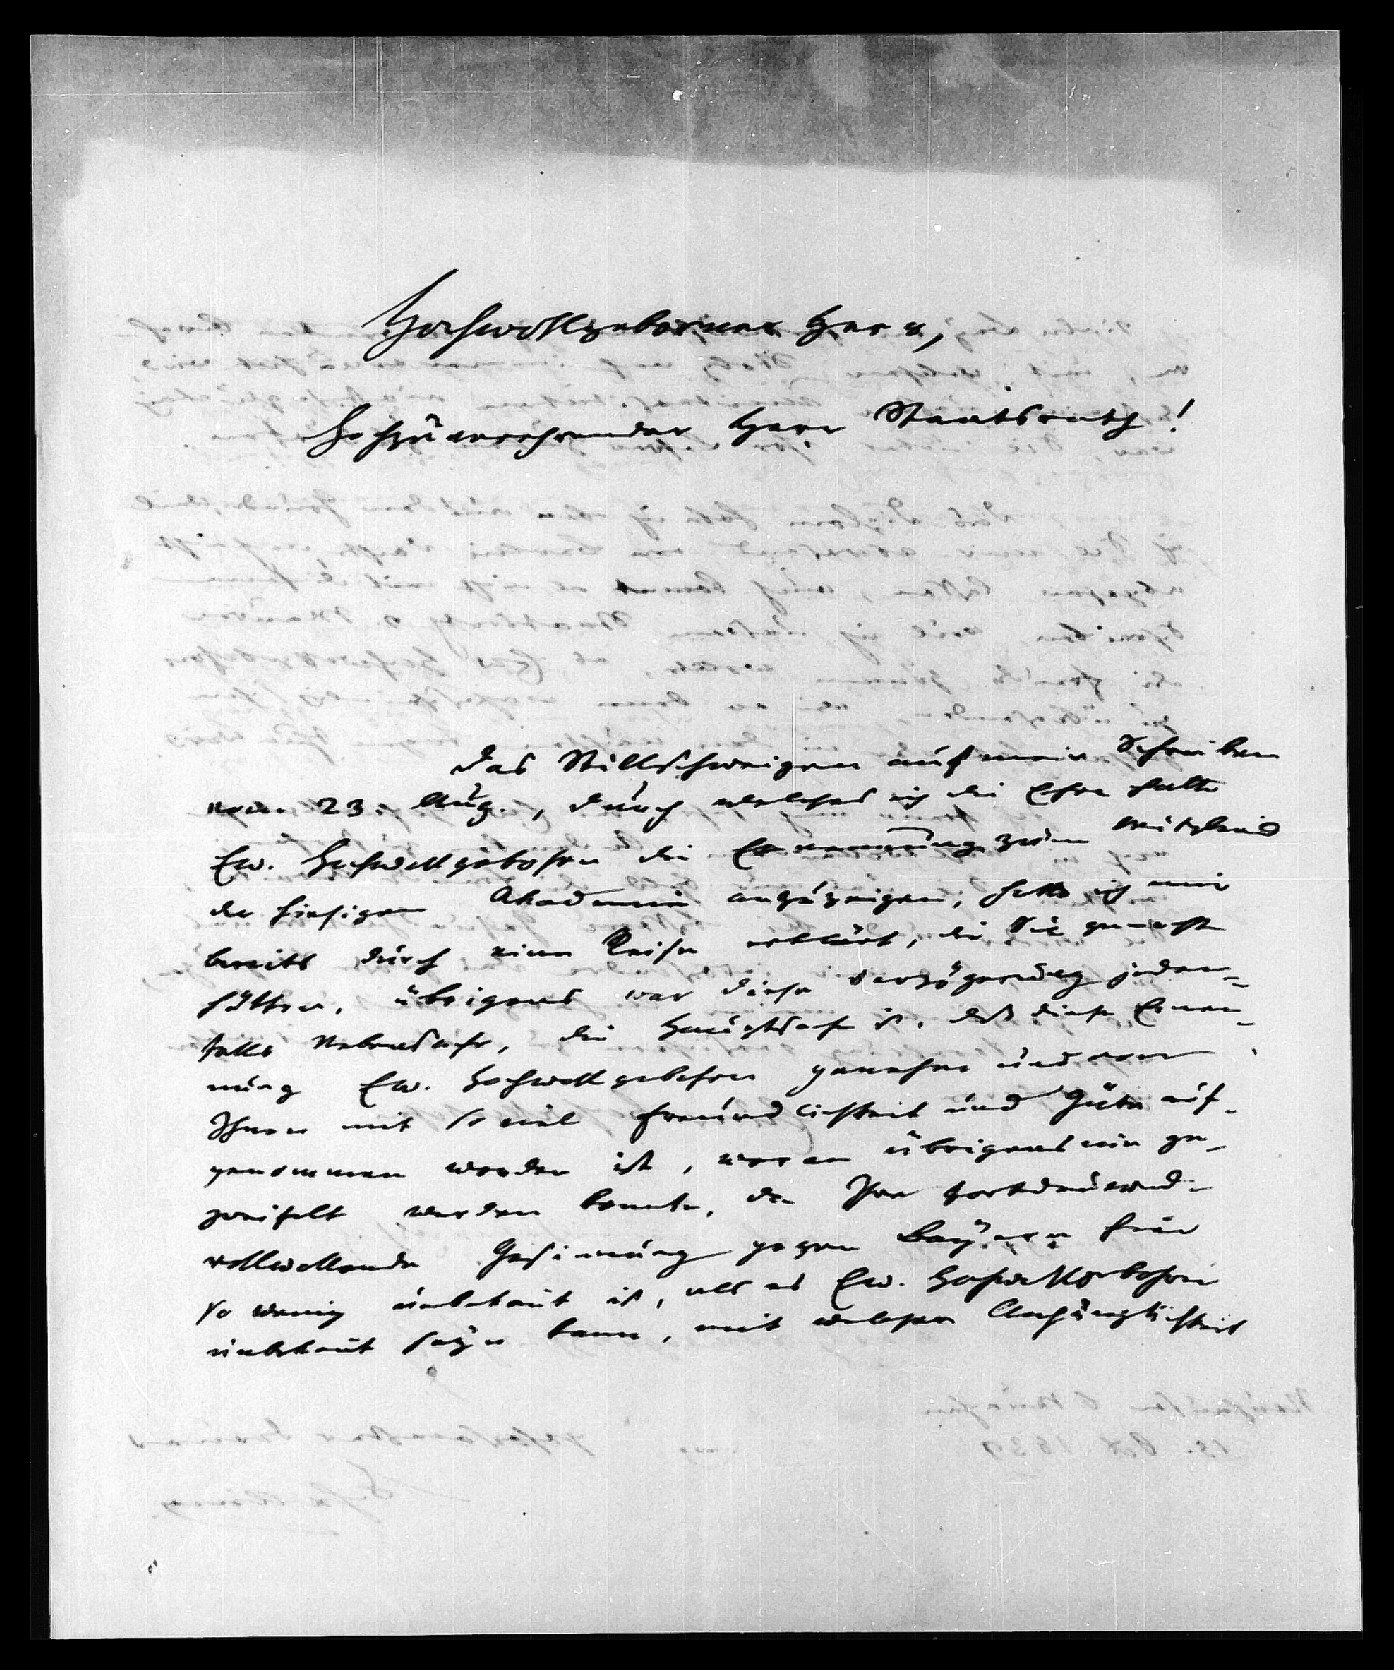 Hochwohlgeborner Herr,
Hochzuverehrender Herr Staatsrath!
Das Stillschweigen auf mein Schreiben
vom 23. Aug., durch welches ich die Ehre hatte
Ew. Hochwohlgebohren die Ernennung zum Mitglied
der hiesigen Akademie anzuzeigen, hatte ich mir
bereits durch eine Reise erklärt, die Sie gemacht
hätten, übrigens war diese Verzögerung jeden-
falls Nebensache, die Hauptsache ist, daß diese Ernen-
nung Ew. Hochwohlgebohren genehm und von
Ihnen mit so viel Freundlichkeit und Güte auf-
genommen worden ist, woran übrigens nie ge-
zweifelt werden konnte, da Ihre fortdauernd-
wohlwollende Gesinnung gegen Bayern hier
so wenig unbekannt ist, als es Ew. Hochwohlgebohren
unbekannt seyn kann, mit welcher Anhänglichkeit